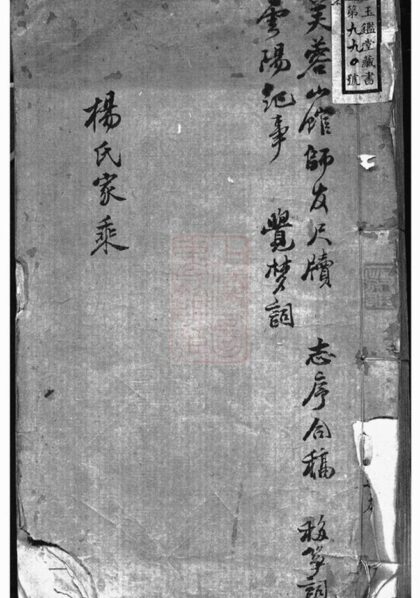 玉鑑堂藏書
第九九〇號
芙蓉山館師友尺牘 志序合稿 移箏詞
雲陽記事 覺夢詞
楊氏家乘